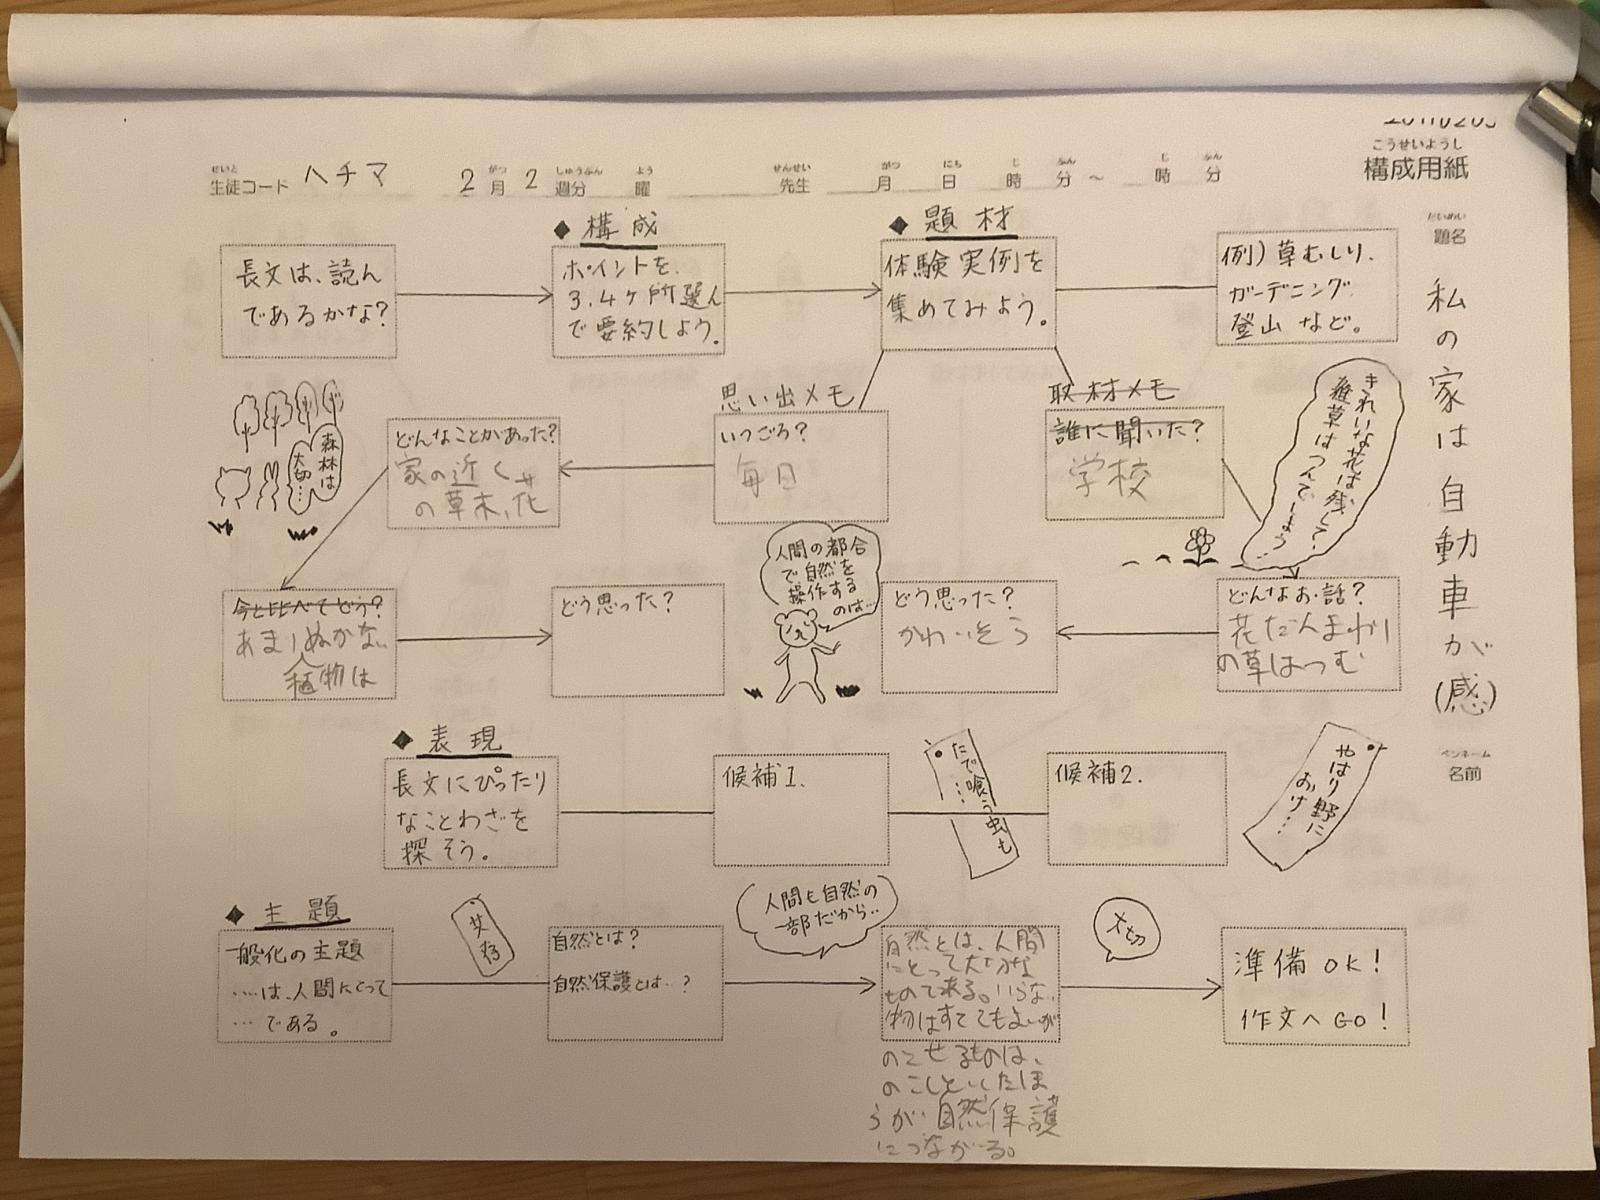 こうせいようし
構成用紙
せいと
生徒コード ハチマ
がつ しゅうぶん よう
2月2週分 曜
せんせい
先生
がつ にち じ ふん じ ふん
月 日 時 分 ~ 時 分
だいめい
題名
私の家は自動車が(感)
ペンネーム
名前
◆構成
◆題材
長文は、読ん
であるかな?
ポイントを、
3.4ヶ所選ん
で要約しよう。
体験実例を
集めてみよう。
例)草むしり、
ガーデニング、
登山など。
森林は
大切…
どんなことがあった?
家の近く
の草木、花
思い出メモ
いつごろ?
毎日
取材メモ
誰に聞いた?
学校
きれいな花は残して、
雑草はつんでしまう…
今と比べてどう?
あまりぬかない
植物は
どう思った?
人間の都合
で自然を
操作する
のは…
どう思った?
かわいそう
どんなお話?
花だんまわり
の草はつむ
◆表現
長文にぴったり
なことわざを
探そう。
候補1.
たで喰う虫も
……
候補2.
やはり野に
おけ…
◆主題
一般化の主題
‥‥は、人間にとって
…である。
自然とは?
自然保護とは…?
人間も自然の
一部だから‥
自然とは、人間
にとって大切な
物はすててもよいが
のこせるものは、
のこしといたほ
うが自然保護
につながる。
大切
準備OK!
作文へGO!